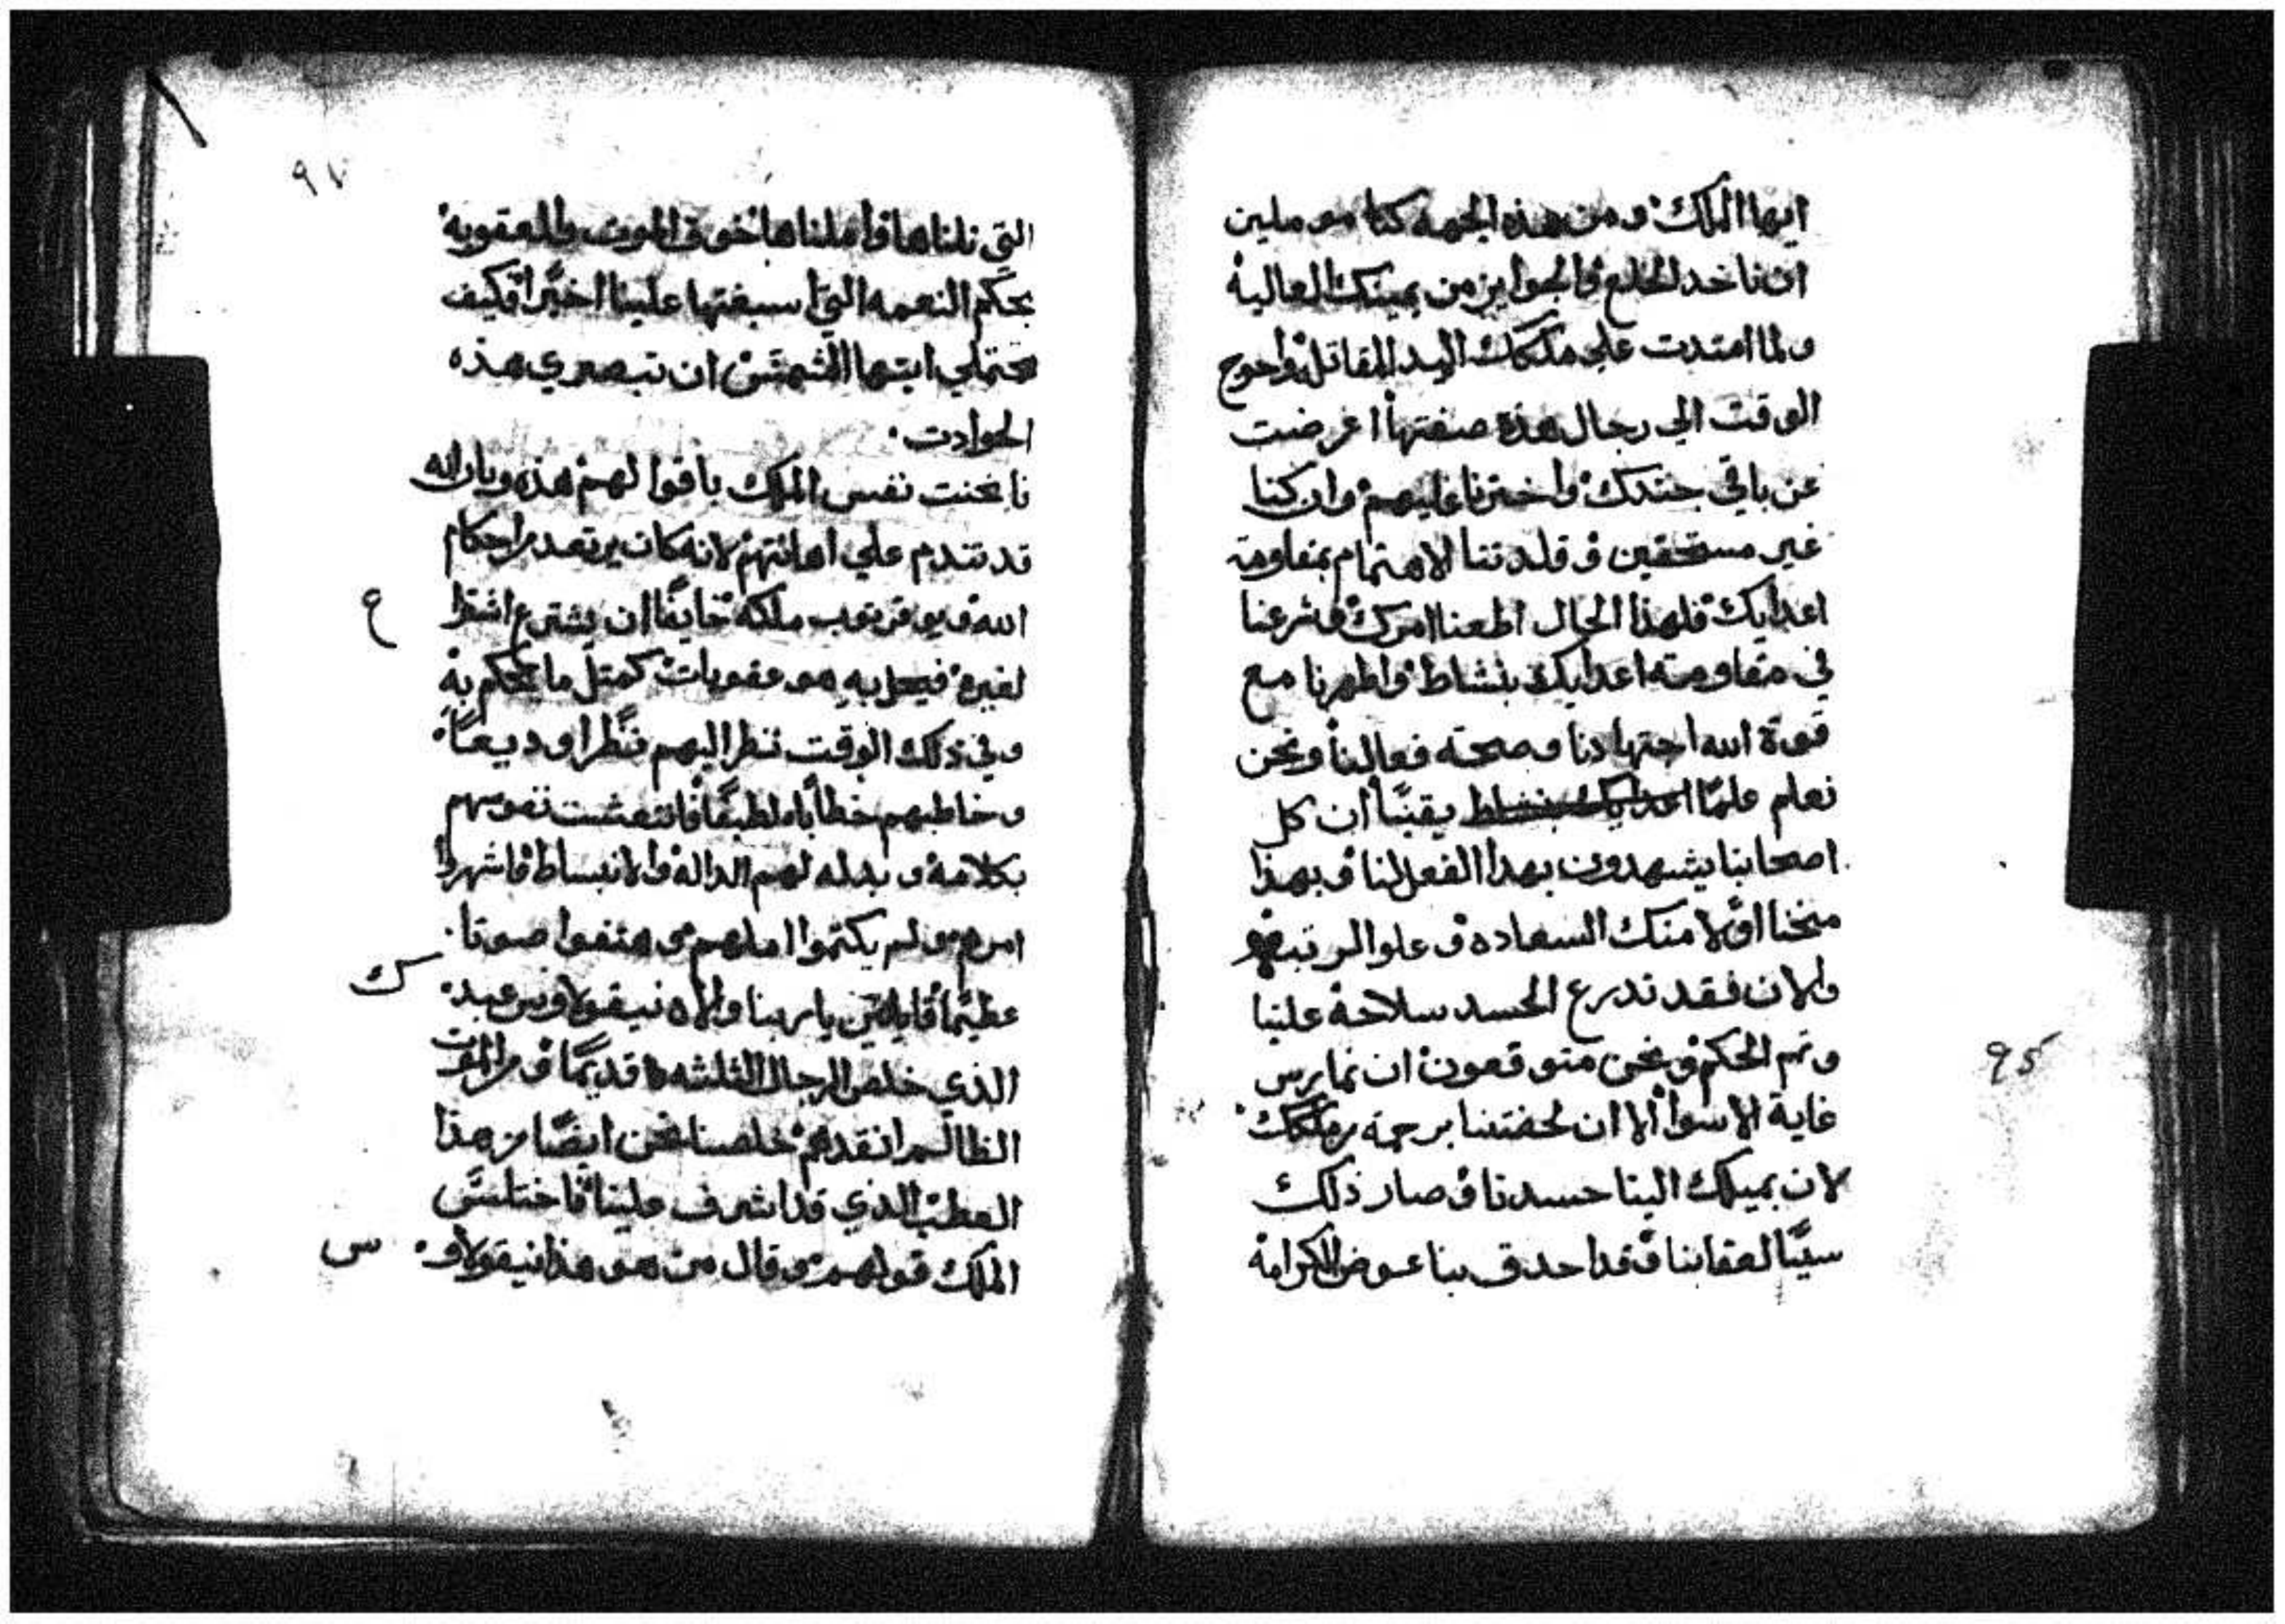 ايها الملك ومن هذه الجهه كنا موملين
ان ناخد الخلع والجوايز من يمينك العالية
ولما امتدت علي ملكك اليد المقاتله واحوج
الوقت الي رجال هذه صفتها اعرضت
عن باقي جندك واخترنا عليهم وان كنا
غير مستحقين وقلدتنا الاهتمام بمقاومة
اعدايك فلهذا الحال اطعنا امرك وشرعنا
في مقاومة اعدايك بنشاط واظهرنا مع
قوة الله اجتهادنا وصحة فعالنا ونحن
نعلم علمًا اعدايك بنشاط يقينًا ان كل
اصحابنا يشهدون بهدا الفعل لنا وبهذا
منحنا اولا منك السعاده وعلو الرتبه
والان فقد تدرع الحسد سلاحة علينا
وتم الحكم ونحن متوقعون ان نمارس
غاية الاسوا الا ان لحقتنا برحمة ملكك
لان بميلك الينا حسدنا وصار ذلك
سببًا لعقابنا وقد احدق بنا عوض الكرامة
95
97
التي نلناها واملناها خوف الموت والعقوبة
بحكم النعمه التي اسبغتها علينا اخيرًا فكيف
تحتملي ايتها الشمس ان تبصري هذه
الحوادت
فانحنت نفس الملك باقوالهم هذه وبان انه
قد تندم علي اهانتهم لانه كان يرتعد من احكام
الله ويوقر توب ملكه خايفًا ان يشترع اشتراع
لغيره فيحل به هو عقوبات كمتل ما يحكم به
وفي ذلك الوقت نظر اليهم نظرا وديعًا
وخاطبهم خطابًا لطيفًا فانتعشت نفوسهم
بكلامة وبدله لهم الدالة والانبساط فاشهروا
امرهم ولم يكتموا املهم وهتفوا صوتا
عظيمًا قايلين يا ربنا والاه نيقولاوس عبدك
الذي خلص الرجال الثلثه قديمًا من الموت
الظالم انقدهم خلصنا نحن ايضًا من هذا
العطب الذي قد اشرف علينا فاختلس
الملك قولهم وقال من هو هذا نيقولاوس